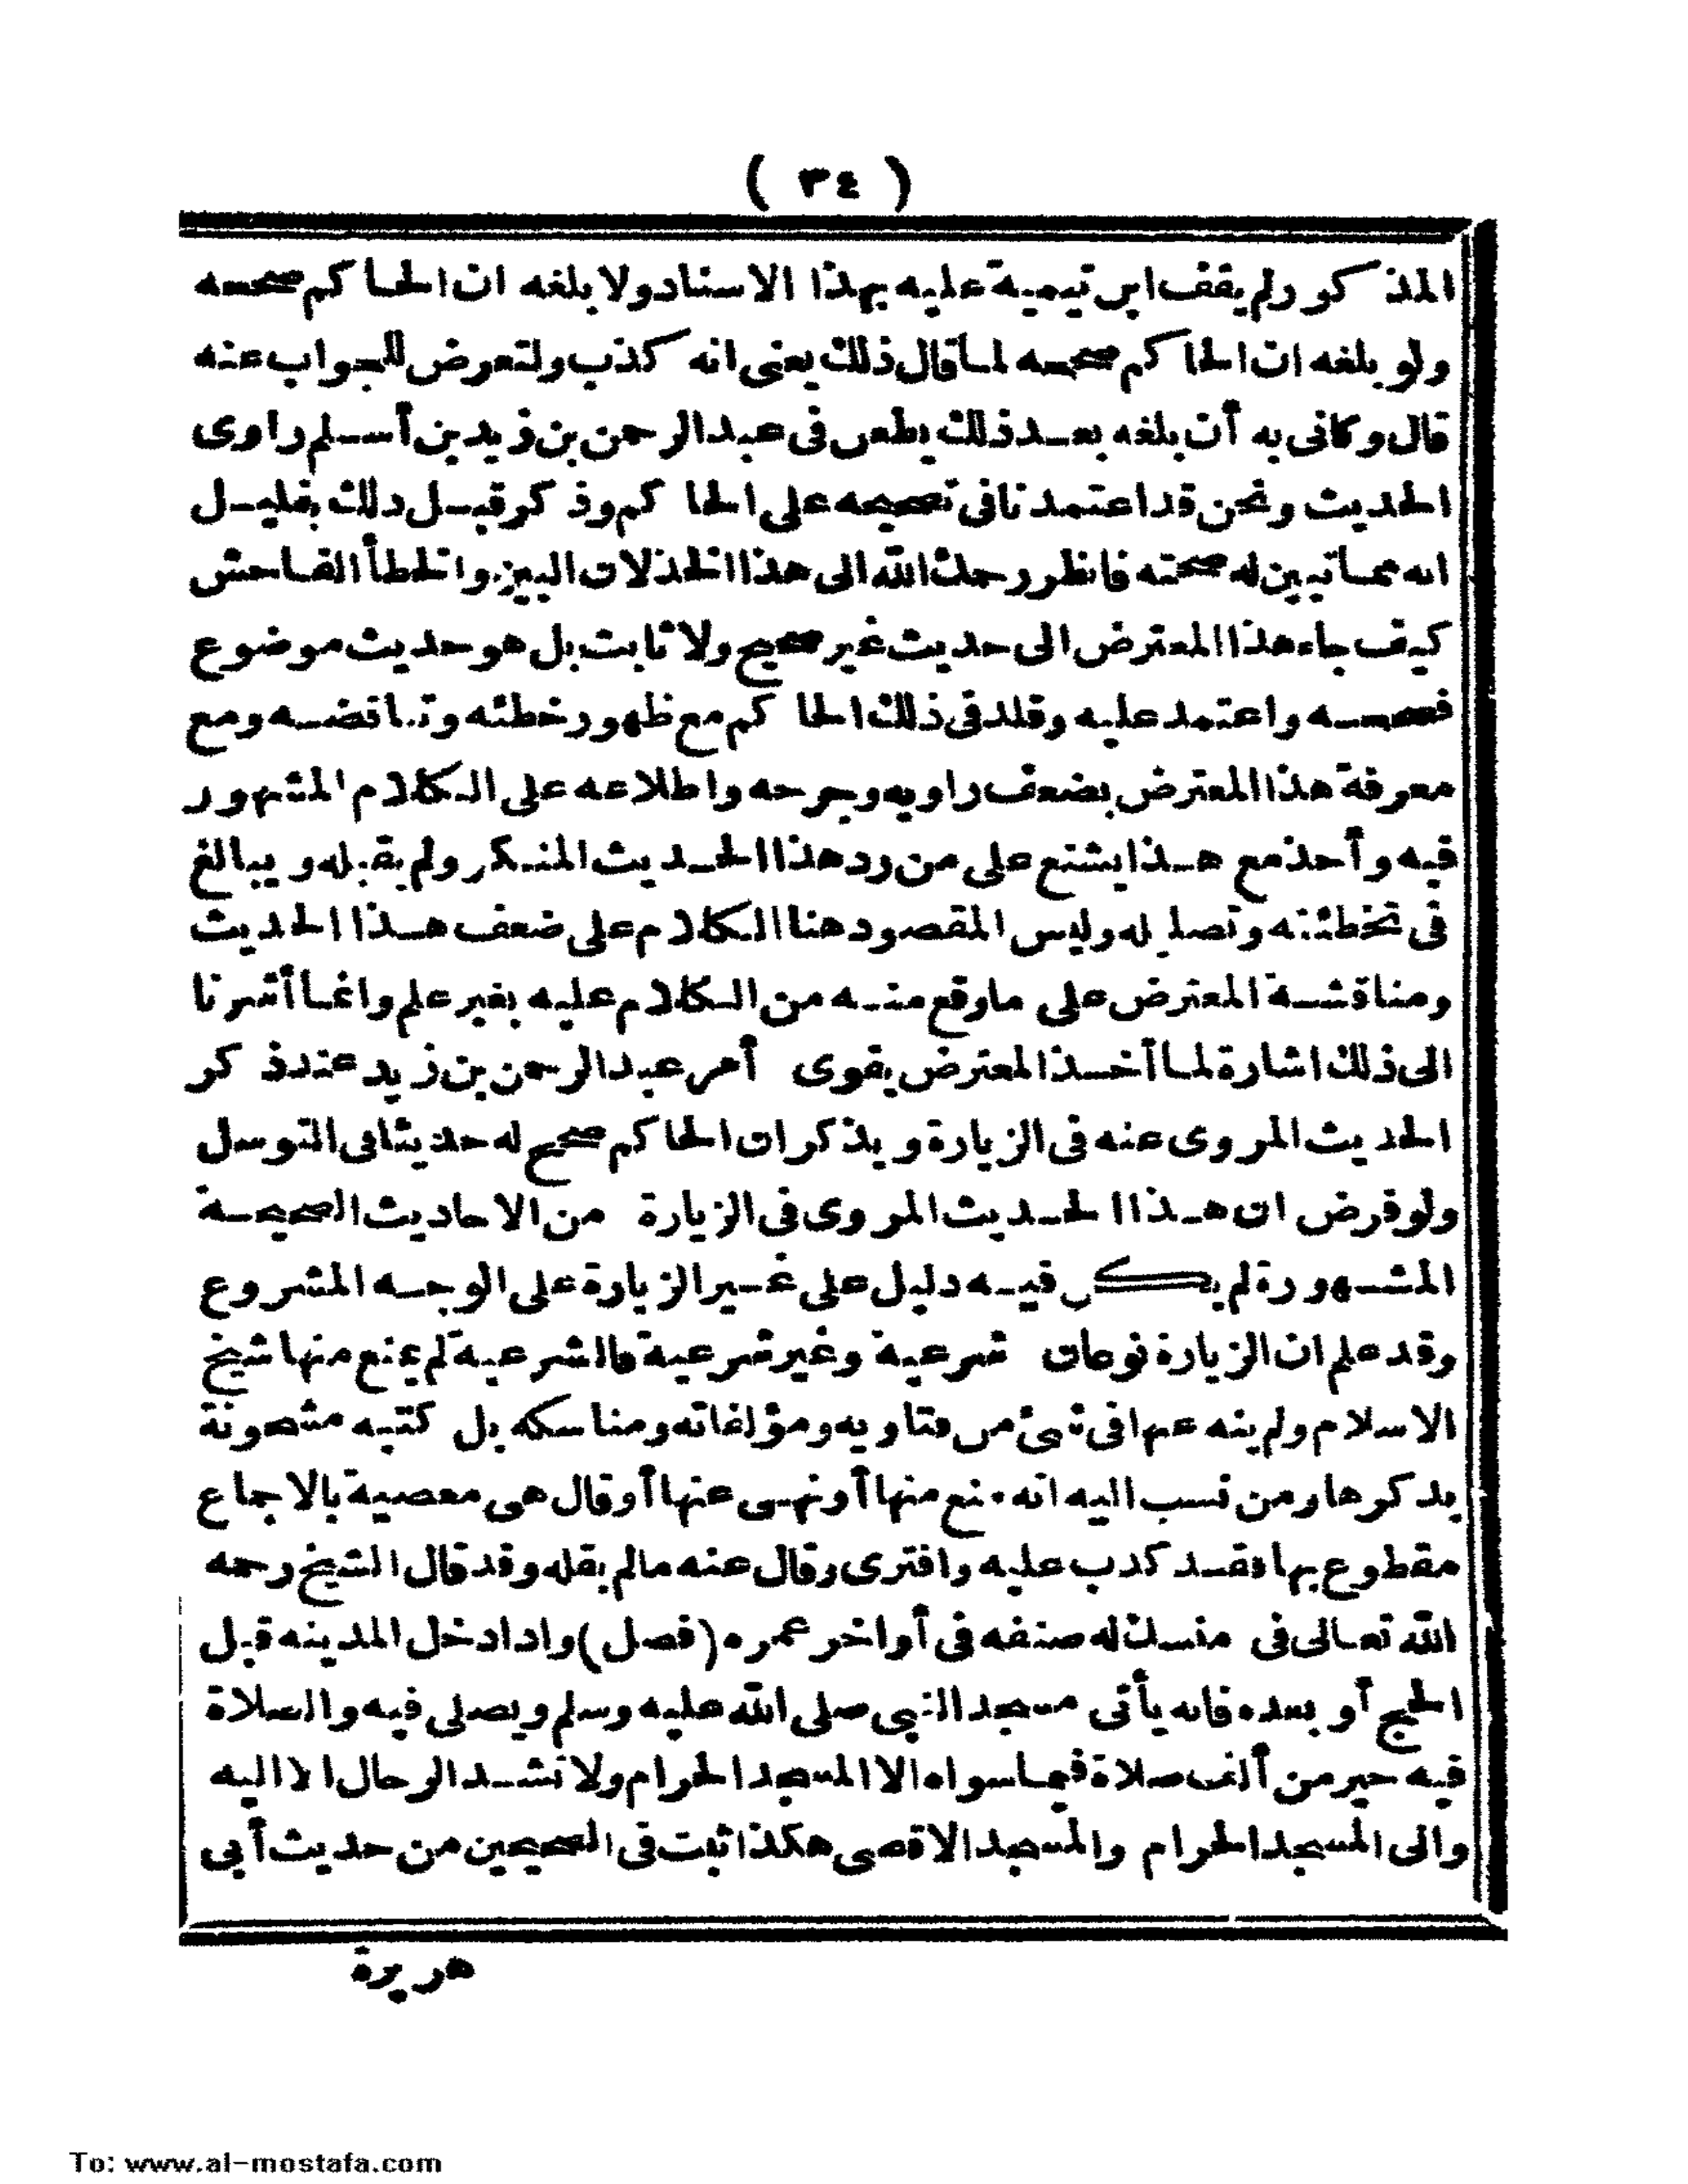 ( ٣٤ )
المذكور ولم يقف ابن تيمية عليه بهذا الاسناد ولا بلغه ان الحاكم صححه
ولو بلغه ان الحاكم صححه لما قال ذلك يعنى انه كذب ولتعرض للجواب عنه
قال وكانى به أن بلغه بعد ذلك يطعن فى عبد الرحمن بن زيد بن أسلم راوى
الحديث ونحن قد اعتمدنا فى تصحيحه على الحاكم وذكر قبل ذلك بقليل
انه مما تبين له صحته فانظر رحمك الله الى هذا الخذلان البين والخطأ الفاحش
كيف جاء هذا المعترض الى حديث غير صحيح ولا ثابت بل هو حديث موضوع
فصححه واعتمد عليه وقلد فى ذلك الحاكم مع ظهور خطئه وتناقضه ومع
معرفة هذا المعترض بضعف راويه وجرحه واطلاعه على الكلام المشهور
فيه وأخذ مع هذا يشنع على من رد هذا الحديث المنكر ولم يقبله ويبالغ
فى تخطئته وتضليله وليس المقصود هنا الكلام على ضعف هذا الحديث
ومناقشة المعترض على ما وقع منه من الكلام عليه بغير علم وانما أشرنا
الى ذلك اشارة لما آخذ المعترض يقوى أمر عبد الرحمن بن زيد عند ذكر
الحديث المروى عنه فى الزيارة ويذكر ان الحاكم صحح له حديثا فى التوسل
ولو فرض ان هذا الحديث المروى فى الزيارة من الاحاديث الصحيحة
المشهورة لم يكن فيه دليل على غير الزيارة على الوجه المشروع
وقد علم ان الزيارة نوعان شرعية وغير شرعية فالشرعية لم يمنع منها شيخ
الاسلام ولم ينه عنها فى شئ من فتاويه ومؤلفاته ومناسكه بل كتبه مشحونة
بذكرها ومن نسب اليه انه منع منها أو نهى عنها أو قال هى معصية بالاجماع
مقطوع بها فقد كذب عليه وافترى وقال عنه ما لم يقله وقد قال الشيخ رحمه
الله تعالى فى منسك له صنفه فى أواخر عمره (فصل) واذا دخل المدينه قبل
الحج أو بعده فانه يأتى مسجد النبى صلى الله عليه وسلم ويصلى فيه والصلاة
فيه خير من ألف صلاة فيما سواه الا المسجد الحرام ولا تشد الرحال الا اليه
والى المسجد الحرام والمسجد الاقصى هكذا ثبت فى الصحيحين من حديث أبى
هريرة
To: www.al-mostafa.com